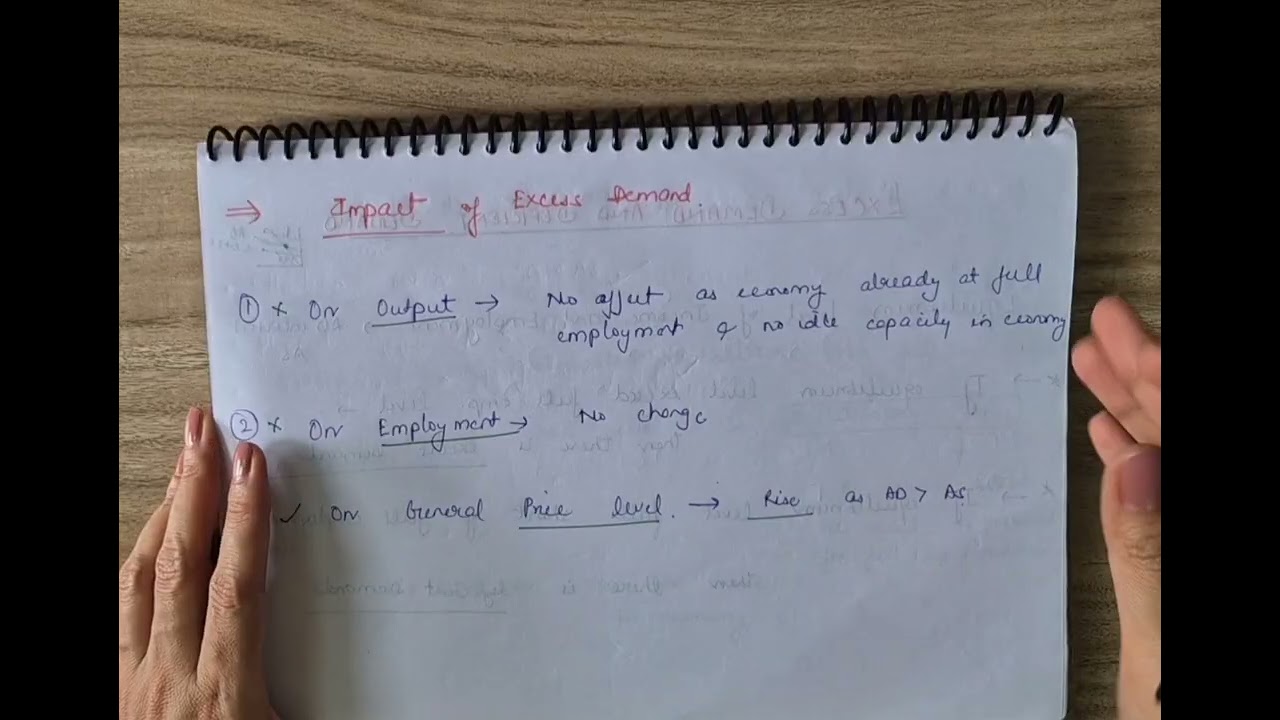 ⇒ Impact of Excess Demand
① * On Output → No affect as economy already at full
employment & no idle capacity in economy
② * On Employment → No change
✓ On General Price level. → Rise as AD > AS